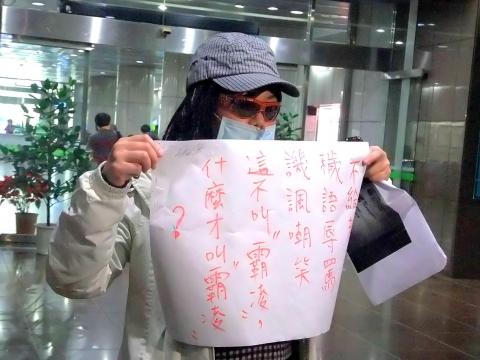 不給
穢語辱罵
譏諷嘲笑
這不叫"霸凌",
什麼才叫"霸凌"
?